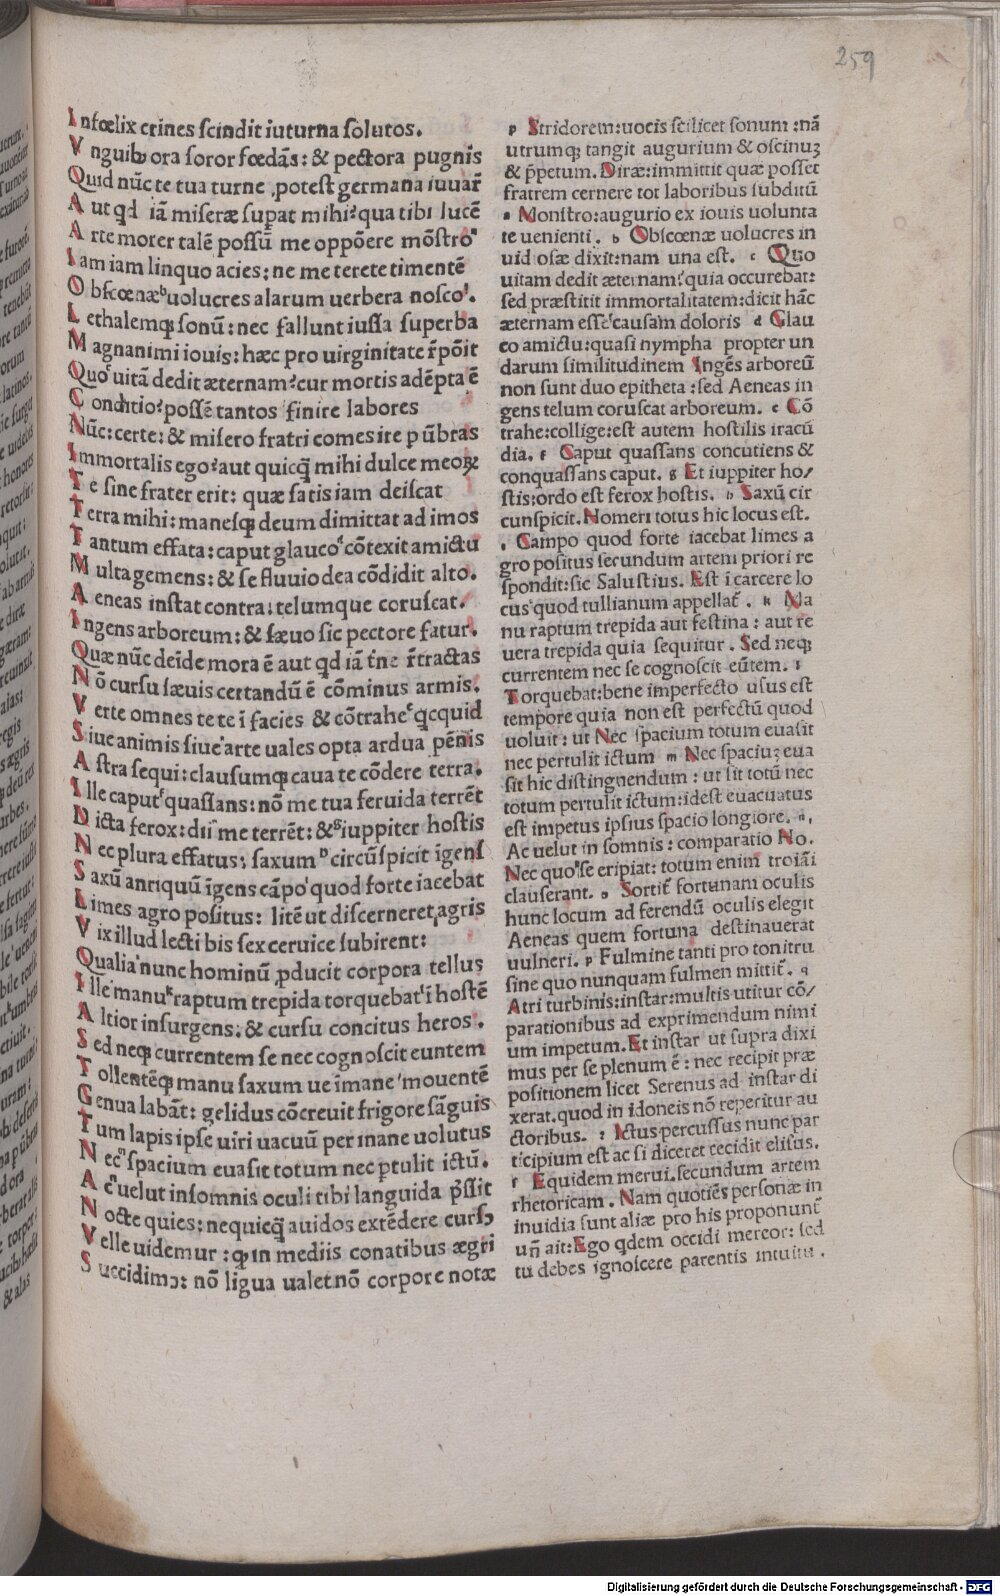 259
Infœlix crines scindit iuturna solutos.
Vnguibꝰ ora soror fœdãs: & pectora pugnis
Quid nũc te tua turne ꝓotest germana iuuar̃
Aut qd iã miseræ supat mihi? qua tibi lucẽ
Arte morer talẽ possũ me oppõere mõstro
Iam iam linquo acies: ne me terete timentẽ
Obscœnæ uolucres alarum uerbera nosco.
Lethalemqꝫ sonũ: nec fallunt iussa superba
Magnanimi iouis: hæc pro uirginitate r̃põit
Quo uitã dedit æternam? cur mortis adẽpta ẽ
Conditio? possẽ tantos finire labores
Nũc: certe: & misero fratri comes ire p ũbras
Immortalis ego? aut quicq̃ mihi dulce meoꝝ
Te sine frater erit: quæ satis iam deiscat
Terra mihi: manesqꝫ deum dimittat ad imos
Tantum effata: caput glauco cõtexit amictu
Multa gemens: & se fluuio dea cõdidit alto.
Aeneas instat contra: telumque coruscat.
Ingens arboreum: & sæuo sic pectore fatur.
Quæ nũc deĩde mora ẽ aut qd iã t̃ne r̃tractas
Nõ cursu sæuis certandũ ẽ cõminus armis.
Verte omnes te te ĩ facies & cõtrahe qcquid
Siue animis siue arte uales opta ardua pẽnis
Astra sequi: clausumqꝫ caua te cõdere terra.
Ille caput quassans: nõ me tua feruida terrẽt
Dicta ferox: dii me terrẽt: & iuppiter hostis
Nec plura effatus: saxum circũspicit ĩgens
Saxũ anriquũ ĩgens cãpo quod forte iacebat
Limes agro positus: litẽ ut discerneret agris
Vix illud lecti bis sex ceruice subirent:
Qualia nunc hominũ ꝓducit corpora tellus
Ille manu raptum trepida torquebat ĩ hostẽ
Altior insurgens: & cursu concitus heros.
Sed neqꝫ currentem se nec cognoscit euntem
Tollentẽqꝫ manu saxum ue ĩmane mouentẽ
Genua labãt: gelidus cõcreuit frigore sãguis
Tum lapis ipse uiri uacuũ per inane uolutus
Nec spacium euasit totum nec ptulit ictũ.
Ac uelut insomnis oculi tibi languida p̃ssit
Nocte quies: nequicq̃ auidos extẽdere cursꝰ
Velle uidemur: qꝫ in mediis conatibus ægri
Succidimꝰ: nõ ligua ualet nõ corpore notæ
p Stridorem: uocis scilicet sonum: nã
utrumqꝫ tangit augurium & oscinuꝫ
& p̃petum. Diræ: immittit quæ posset
fratrem cernere tot laboribus subditũ
a Monstro: augurio ex iouis uolunta
te uenienti. b Obscœnæ uolucres in
uid osæ dixit: nam una est. c Quo
uitam dedit æternam? quia occurebat:
sed præstitit immortalitatem: dicit hãc
æternam esse causam doloris d Glau
co amictu: quasi nympha propter un
darum similitudinem Ingẽs arboreũ
non sunt duo epitheta: sed Aeneas in
gens telum coruscat arboreum. e Cõ
trahe: collige: est autem hostilis iracũ
dia. f Caput quassans concutiens &
conquassans caput. g Et iuppiter ho/
stis: ordo est ferox hostis. h Saxũ cir
cunspicit. Nomeri totus hic locus est.
i Campo quod forte iacebat limes a
gro positus secundum artem priori re
spondit: sic Salustius. Est ĩ carcere lo
cus quod tullianum appellat̃. k Ma
nu raptum trepida aut festina: aut re
uera trepida quia sequitur. Sed neqꝫ
currentem nec se cognoscit eũtem. l
Torquebat: bene imperfecto usus est
tempore quia non est perfectũ quod
uoluit: ut Nec spacium totum euasit
nec pertulit ictum m Nec spaciuꝫ eua
sit hic distinguendum: ut sit totũ nec
totum pertulit ictum: idest euacuatus
est impetus ipsius spacio longiore. n
Ac uelut in somnis: comparatio No.
Nec quo se eripiat: totum enim troiãi
clauserant. o Sortit̃ fortunam oculis
hunc locum ad ferendũ oculis elegit
Aeneas quem fortuna destinauerat
uulneri. p Fulmine tanti pro tonitru
sine quo nunquam fulmen mittit̃. q
Atri turbinis: instar: multis utitur cõ/
parationibus ad exprimendum nimi
um impetum. Et instar ut supra dixi
mus per se plenum ẽ: nec recipit præ
positionem licet Serenus ad instar di
xerat. quod in idoneis nõ reperitur au
ctoribus. : Ictus percussus nunc par
ticipium est ac si diceret cecidit elisus.
r Equidem merui. secundum artem
rhetoricam. Nam quotiẽs personæ in
inuidia sunt aliæ pro his proponunt̃
uñ ait: Ego qdem occidi mereor: sed
tu debes ignoscere parentis intuitu.
Digitalisierung gefördert durch die Deutsche Forschungsgemeinschaft - DFG